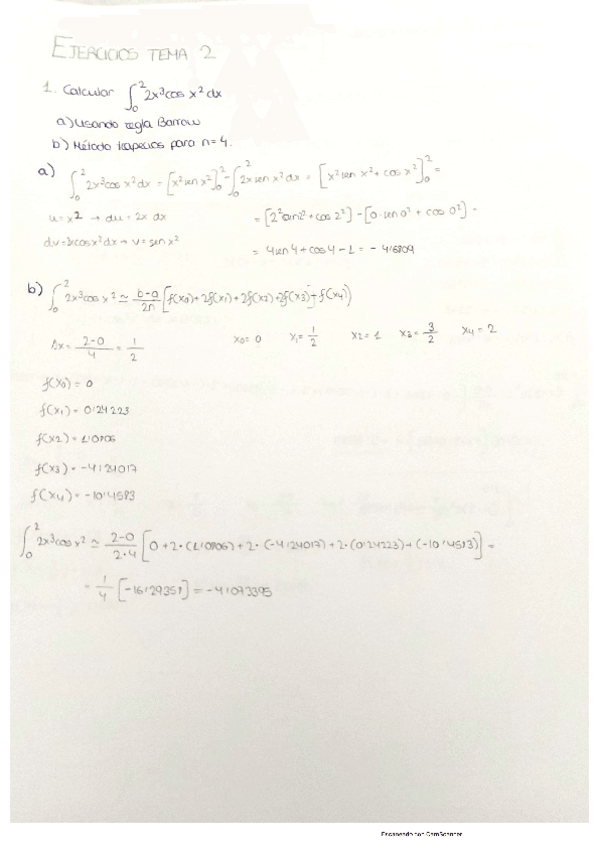 EJERCICIOS TEMA 2
1. Calcular ∫₀² 2x³cos x² dx
a) Usando regla Barrow
b) Método trapecios para n=4.
a) ∫₀² 2x³cos x² dx = [x² sen x²]₀² - ∫₀² 2x sen x² dx = [x² sen x² + cos x²]₀² =
u = x² → du = 2x dx
= [2² sin 2² + cos 2²] - [0·sen 0² + cos 0²] =
dv = 2xcos x² dx → v = sen x²
= 4 sen 4 + cos 4 - 1 = - 4'6809
b) ∫₀² 2x³cos x² ≃ b-a/2n [f(x₀) + 2f(x₁) + 2f(x₂) + 2f(x₃) + f(x₄)]
Δx = 2-0/4 = 1/2 x₀ = 0 x₁ = 1/2 x₂ = 1 x₃ = 3/2 x₄ = 2
f(x₀) = 0
f(x₁) = 0'24223
f(x₂) = 1'0806
f(x₃) = -4'24017
f(x₄) = -10'4583
∫₀² 2x³cos x² ≃ 2-0/2·4 [0 + 2·(1'0806) + 2·(-4'24017) + 2·(0'24223) + (-10'4583)] =
= 1/4 [-16'29358] = -4'073395
Escaneado con CamScanner